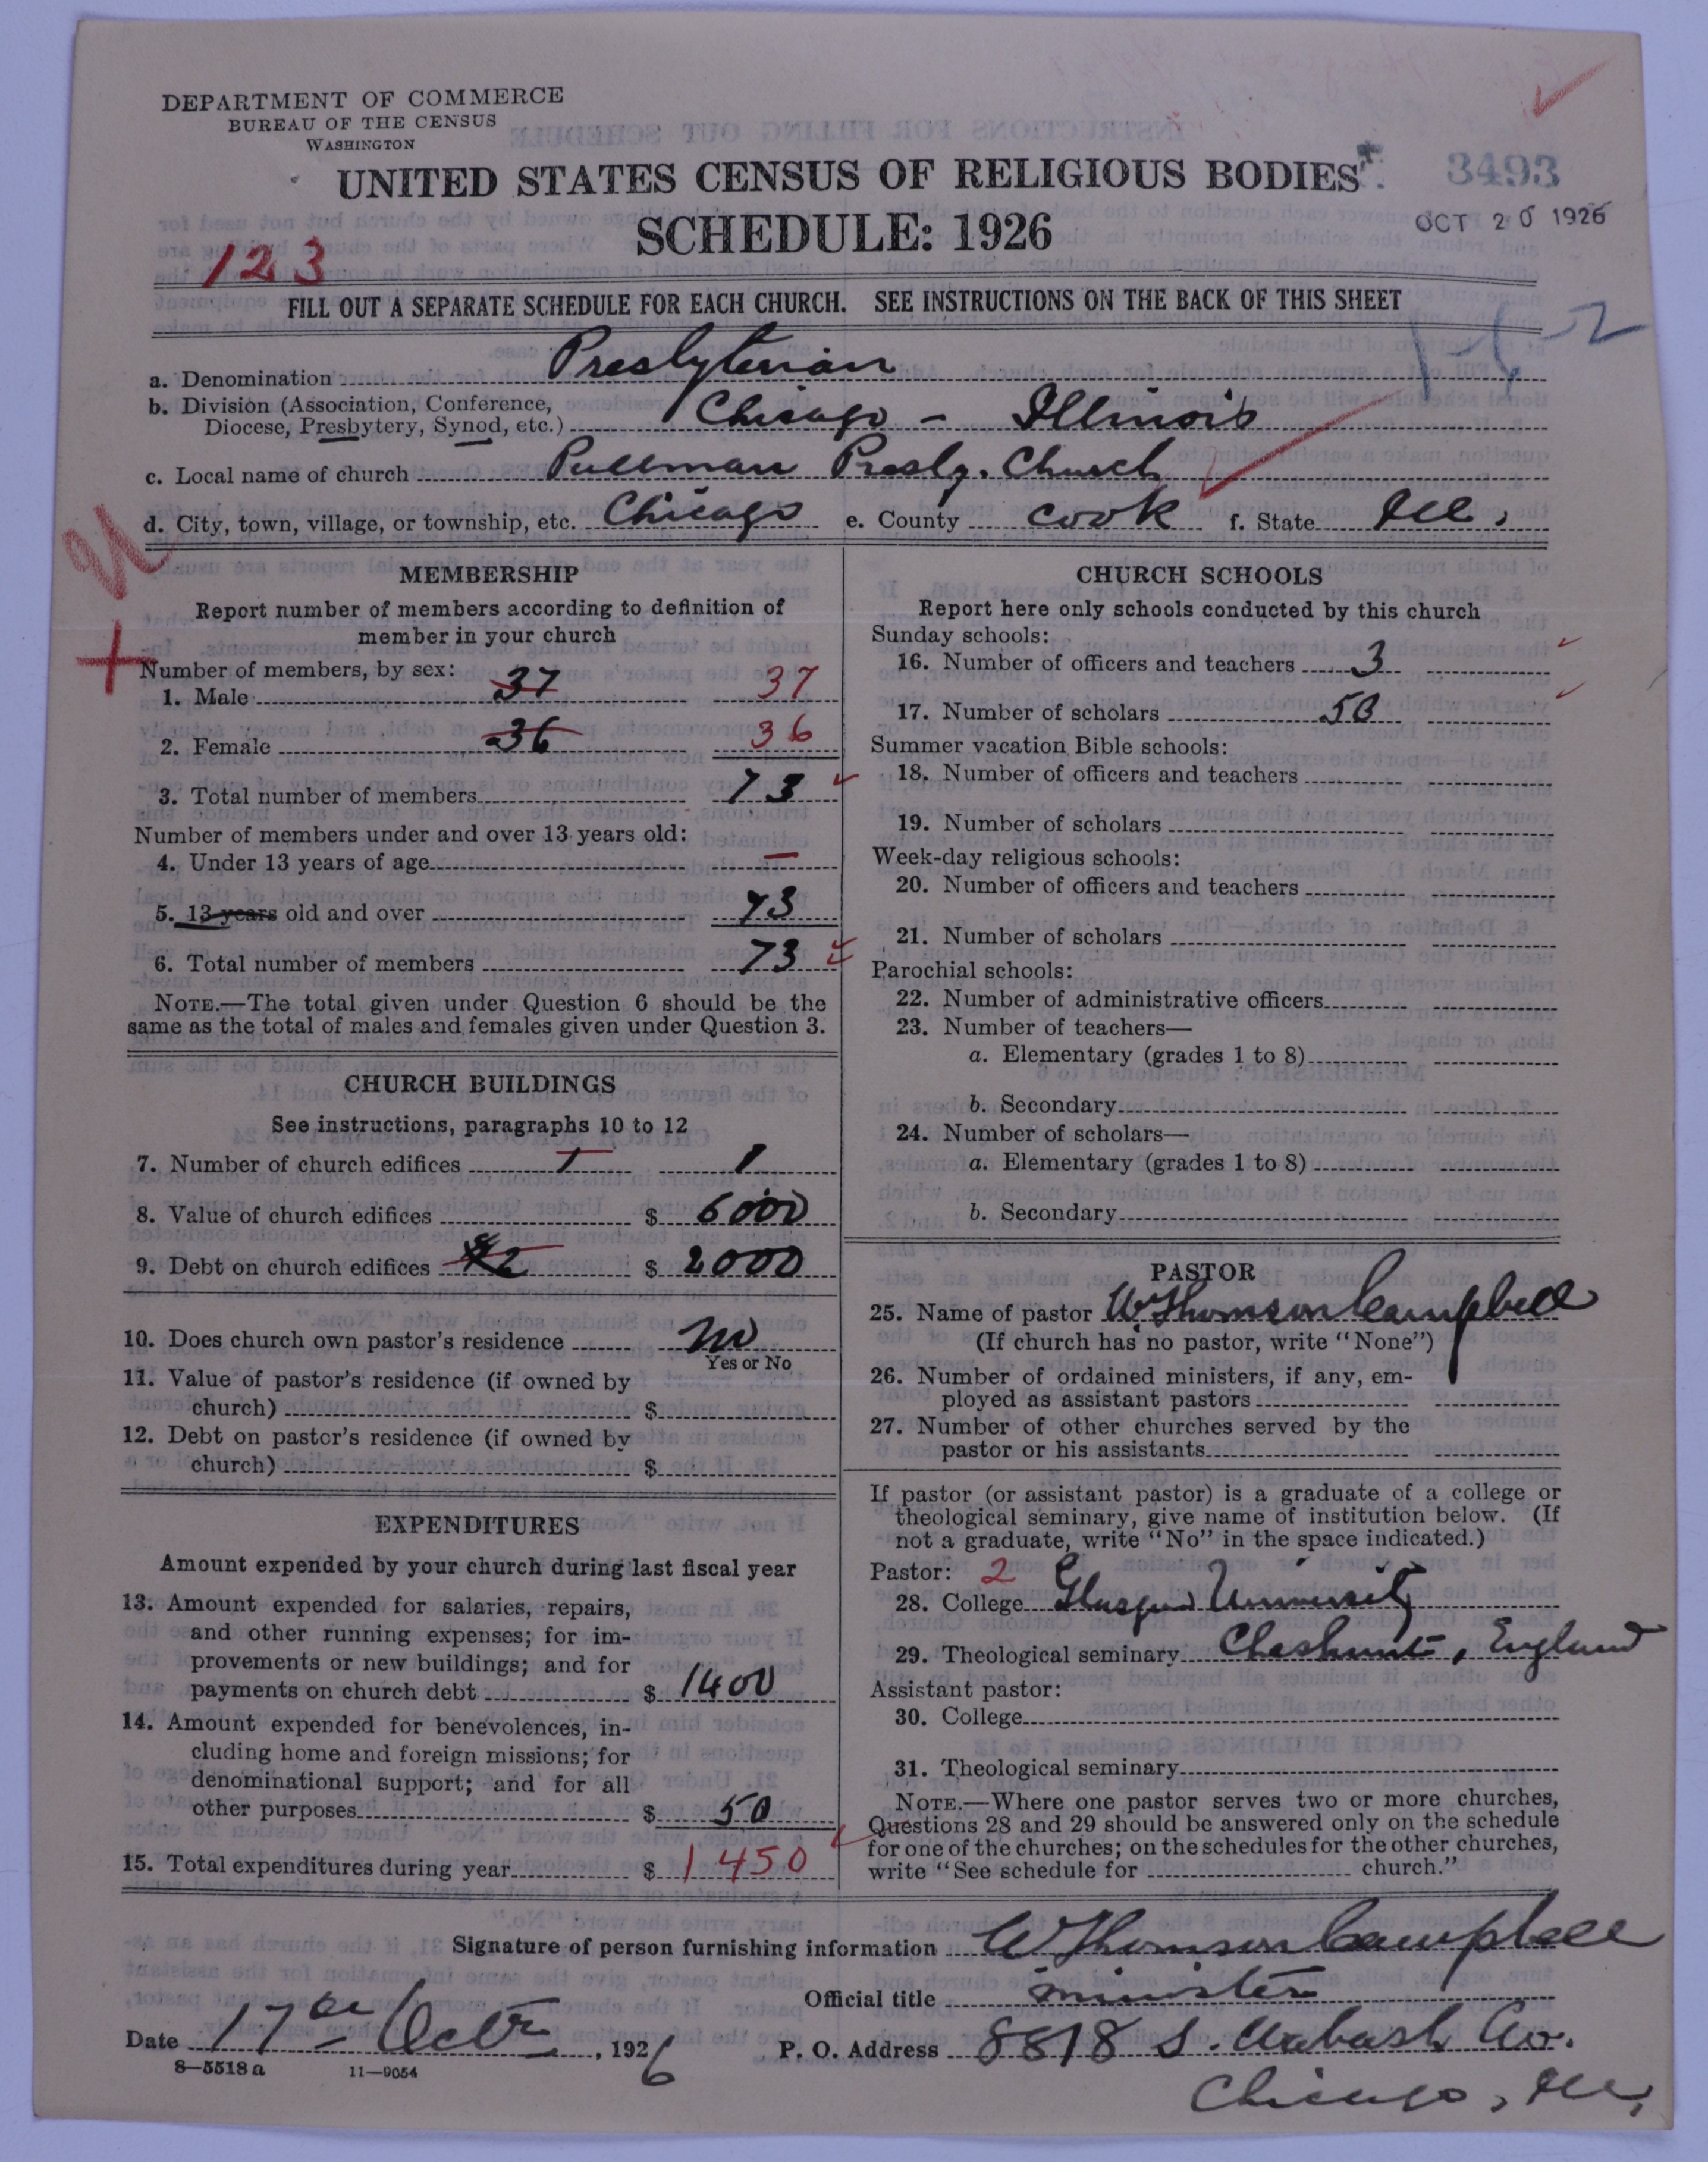 DEPARTMENT OF COMMERCE
BUREAU OF THE CENSUS
WASHINGTON
UNITED STATES CENSUS OF RELIGIOUS BODIES
3493
SCHEDULE: 1926
OCT 20 1926
123
FILL OUT A SEPARATE SCHEDULE FOR EACH CHURCH. SEE INSTRUCTIONS ON THE BACK OF THIS SHEET
a. Denomination Presbyterian
b. Division (Association, Conference, Diocese, Presbytery, Synod, etc.) Chicago - Illinois
c. Local name of church Pullman Presby. Church
d. City, town, village, or township, etc. Chicago e. County Cook f. State Ill.
MEMBERSHIP
Report number of members according to definition of
member in your church
Number of members, by sex:
1. Male 37 37
2. Female 36 36
3. Total number of members 73
Number of members under and over 13 years old:
4. Under 13 years of age —
5. 13 years old and over 73
6. Total number of members 73
NOTE.—The total given under Question 6 should be the
same as the total of males and females given under Question 3.
CHURCH BUILDINGS
See instructions, paragraphs 10 to 12
7. Number of church edifices 1 1
8. Value of church edifices $ 6000
9. Debt on church edifices $ 2000
10. Does church own pastor's residence no
Yes or No
11. Value of pastor's residence (if owned by
church) $
12. Debt on pastor's residence (if owned by
church) $
EXPENDITURES
Amount expended by your church during last fiscal year
13. Amount expended for salaries, repairs,
and other running expenses; for im-
provements or new buildings; and for
payments on church debt $ 1400
14. Amount expended for benevolences, in-
cluding home and foreign missions; for
denominational support; and for all
other purposes $ 50
15. Total expenditures during year $ 1450
CHURCH SCHOOLS
Report here only schools conducted by this church
Sunday schools:
16. Number of officers and teachers 3
17. Number of scholars 50
Summer vacation Bible schools:
18. Number of officers and teachers
19. Number of scholars
Week-day religious schools:
20. Number of officers and teachers
21. Number of scholars
Parochial schools:
22. Number of administrative officers
23. Number of teachers—
a. Elementary (grades 1 to 8)
b. Secondary
24. Number of scholars—
a. Elementary (grades 1 to 8)
b. Secondary
PASTOR
25. Name of pastor W. Thomson Campbell
(If church has no pastor, write "None")
26. Number of ordained ministers, if any, em-
ployed as assistant pastors
27. Number of other churches served by the
pastor or his assistants
If pastor (or assistant pastor) is a graduate of a college or
theological seminary, give name of institution below. (If
not a graduate, write "No" in the space indicated.)
Pastor: 2
28. College Glasgow University
29. Theological seminary Cheshunt, England
Assistant pastor:
30. College
31. Theological seminary
NOTE.—Where one pastor serves two or more churches,
Questions 28 and 29 should be answered only on the schedule
for one of the churches; on the schedules for the other churches,
write "See schedule for church."
Signature of person furnishing information W Thomson Campbell
Official title minister
Date 17th Octr, 1926
P. O. Address 8818 S. Wabash Av.
Chicago, Ill.
8—5518 a 11—9054